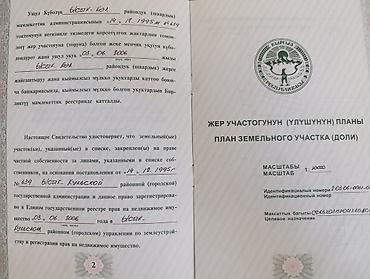 Ушул Күбөлүк Ысык-Көл райондук (шаардык)
мамлекеттик администрациясынын 14.12.1995ж №639
токтомунун негизинде тизмедеги көрсөтүлгөн жактардын томөн-
дөгү жер участогуна (турун) болгон жеке менчик укугун күбө-
лөндүрөт жана ушул укук 03.05.2006 жылы
Ысык-Көл райондук (шаардык) жерге
жайгаштыруу жана кыймылсыз мүлкө укуктарды каттоо боюн-
ча башкармасында, кыймылсыз мүлккө болгон укуктардын Бир-
диктүү мамлекеттик реестринде катталды.
Настоящее Свидетельство удостоверяет, что земельный(ые)
участок(ки), указанный(ые) в списке, закреплен(ы) на праве
частной собственности за лицами, указанными в списке соб-
ственников, на основании постановления от 14.12.1995г
№639 Ысык-Кульской районной (городской)
государственной администрации и данное право зарегистриро-
вано в Едином государственном реестре прав на недвижимое иму-
щество 03.05.2006 года в Ысык-
Кульском районном (городском) управлении по землеустрой-
ству и регистрации прав на недвижимое имущество.
2
КЫРГЫЗ
РЕСПУБЛИКАСЫ
ЖЕР УЧАСТОГУНУН (ҮЛҮШҮНҮН) ПЛАНЫ
ПЛАН ЗЕМЕЛЬНОГО УЧАСТКА (ДОЛИ)
МАСШТАБЫ
МАСШТАБ 1: 10000
Идентификациялык номери
Идентификационный номер
Максаттык багыты
Целевое назначение